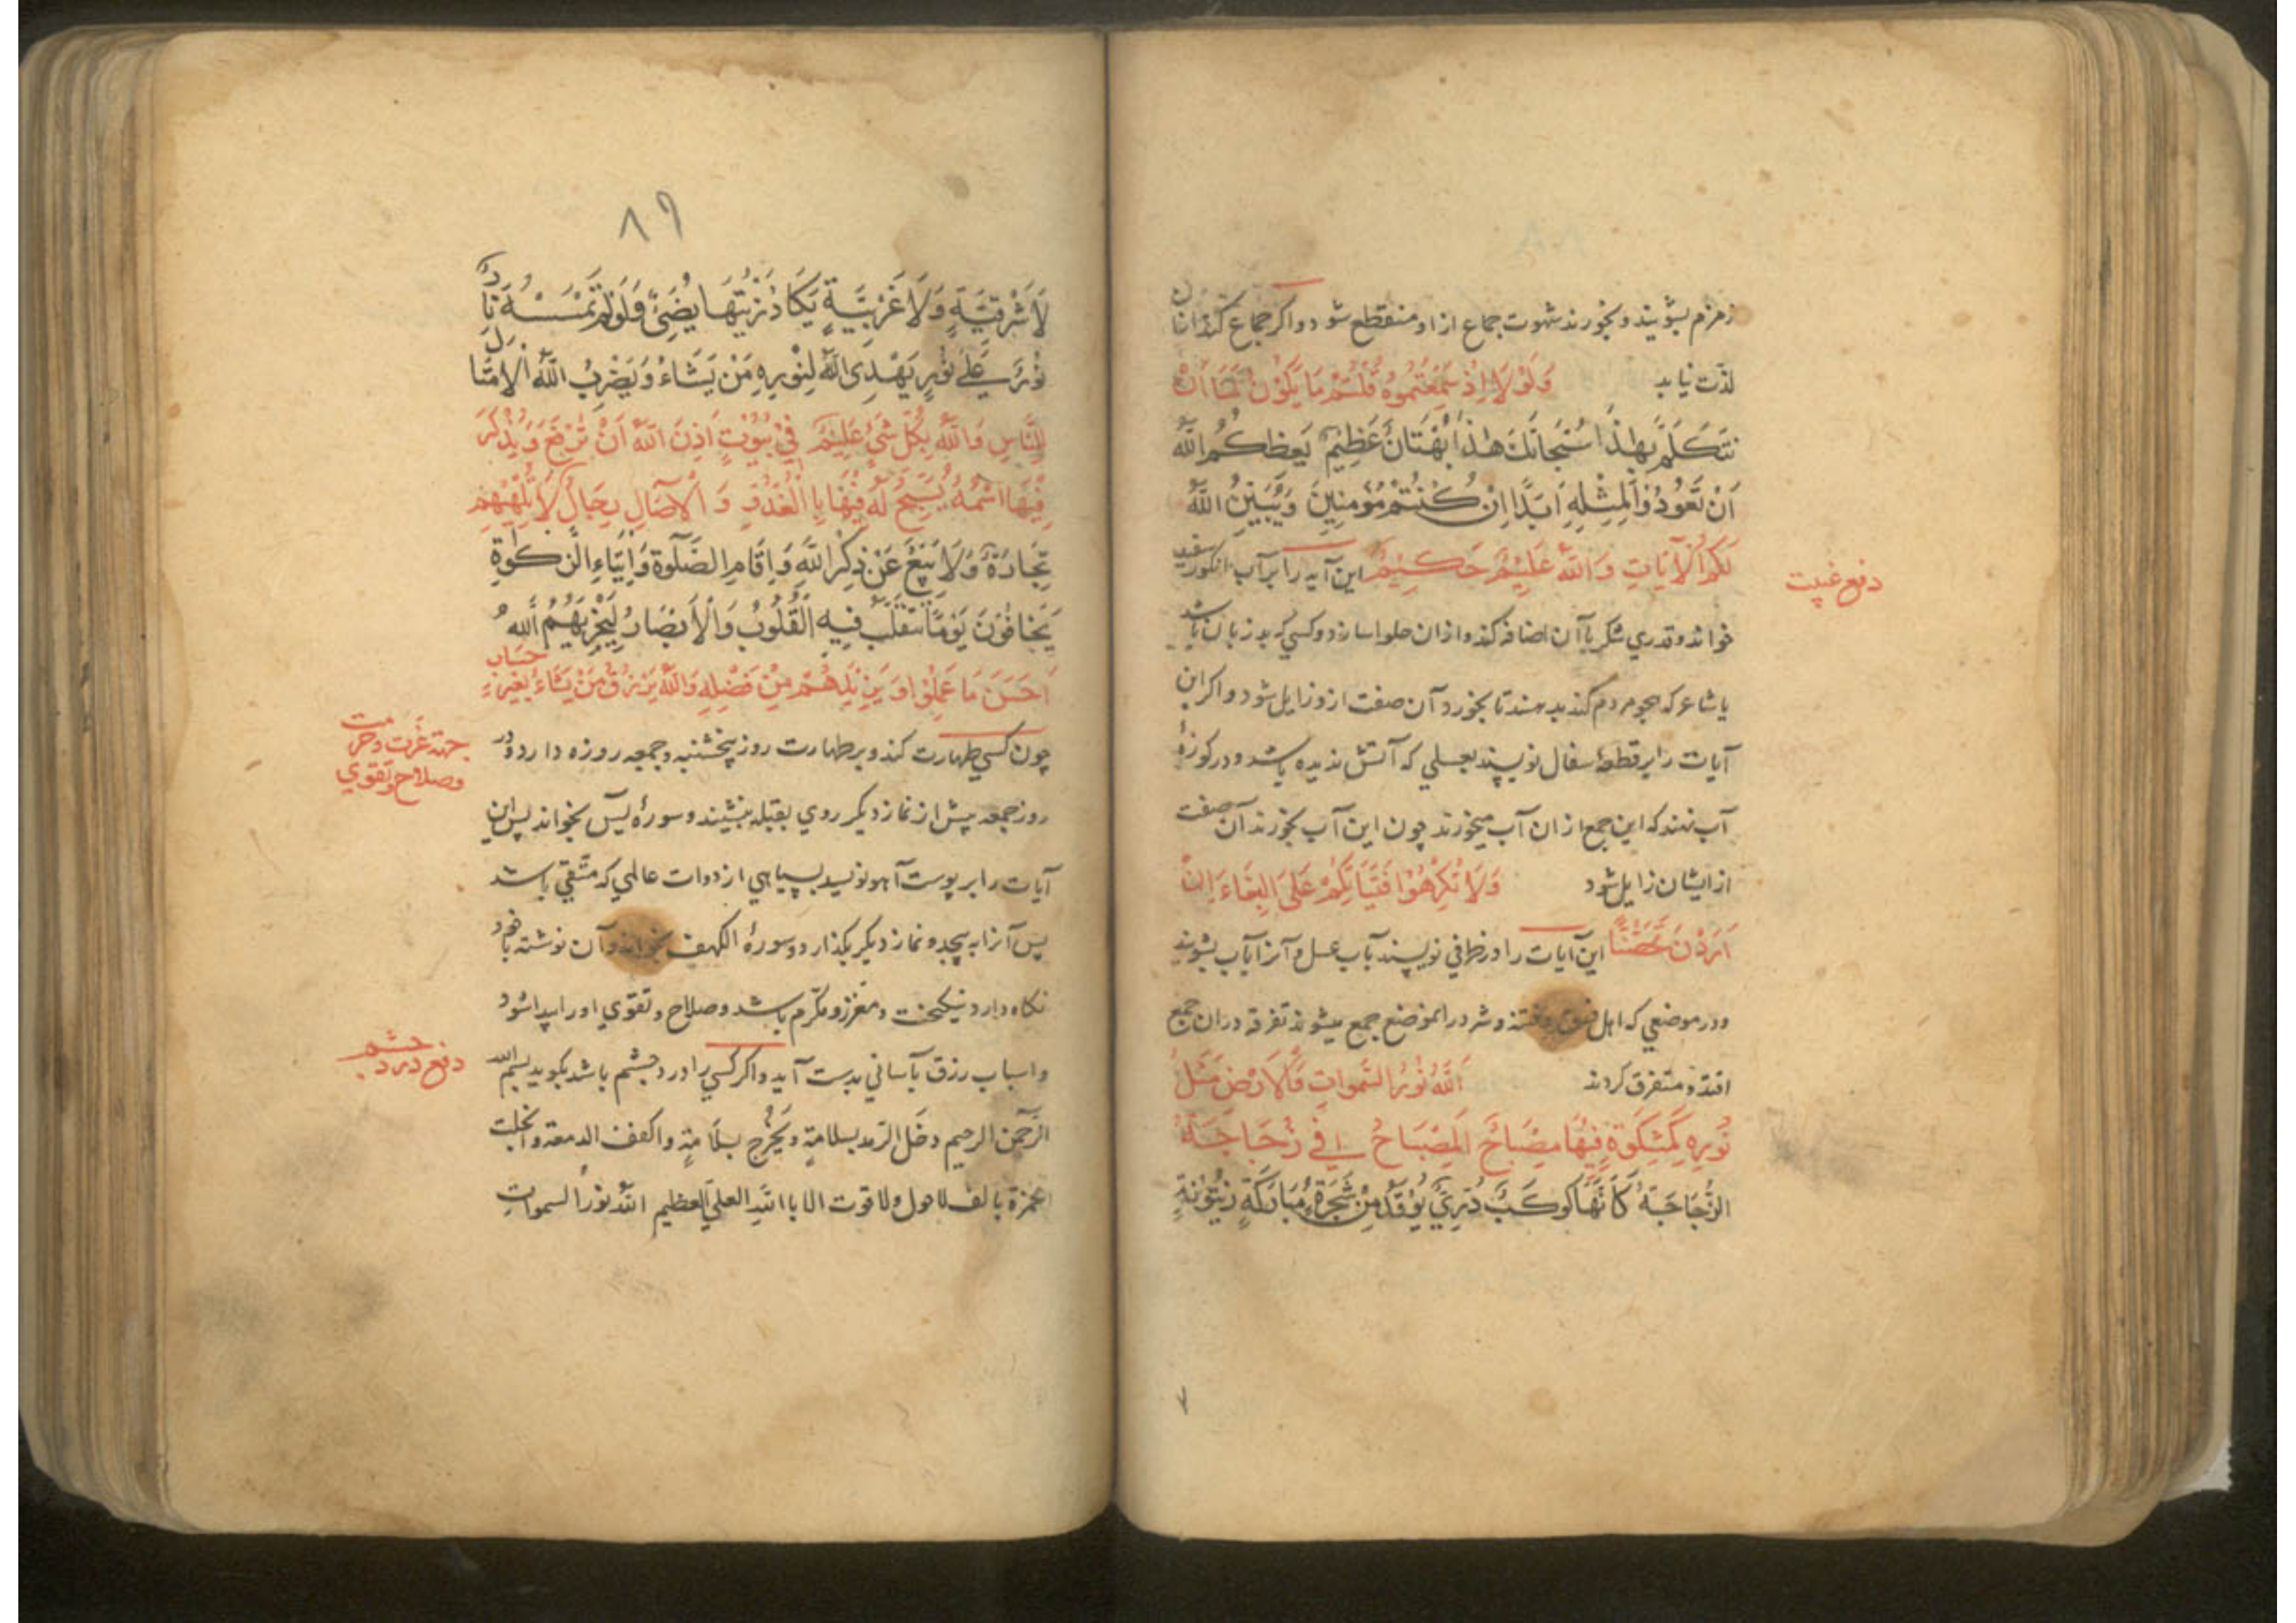 زمزم بشویند و بخورند شهوت جماع از او منقطع شود و اگر جماع کند از آن
لذّت نیابد وَلَوْلَا اِذْ سَمِعْتُمُوهُ قُلْتُمْ مَا يَكُوْنُ لَنَا اَنْ
نَتَكَلَّمَ بِهٰذَا سُبْحَانَكَ هٰذَا بُهْتَانٌ عَظِيْمٌ يَعِظُكُمُ اللّٰهُ
اَنْ تَعُوْدُوْا لِمِثْلِهِ اَبَدًا اِنْ كُنْتُمْ مُؤْمِنِيْنَ وَيُبَيِّنُ اللّٰهُ
لَكُمُ الْآيَاتِ وَاللّٰهُ عَلِيْمٌ حَكِيْمٌ این آیه را بر آب انکور سفید
دفع غیبت
خواند و قدری شکر با آن اضافه کند و از آن حلوا سازد و کسی که بد زبان باشد
یا شاعر که هجو مردم کند بدهند تا بخورد آن صفت ازو زایل شود و اکر این
آیات را بر قطعهٔ سفال نویسند بعسلی که آتش ندیده باشد و در کوزهٔ
آب نهند که این جمع از ان آب میخورند چون این آب بخورند آن صفت
از ایشان زایل شود وَلَا تُكْرِهُوْا فَتَيَاتِكُمْ عَلَى الْبِغَاءِ اِنْ
اَرَدْنَ تَحَصُّنًا این آیات را در ظرفی نویسند بآب عسل و آنرا بآب بشویند
و در موضعی که اهل فسق و فتنه و شر در انموضع جمع میشوند تفرقه در ان جمع
افتد و متفرق کردند اَللّٰهُ نُوْرُ السَّمٰوَاتِ وَالْاَرْضِ مَثَلُ
نُوْرِهِ كَمِشْكٰوةٍ فِيْهَا مِصْبَاحٌ اَلْمِصْبَاحُ فِيْ زُجَاجَةٍ
الزُّجَاجَةُ كَاَنَّهَا كَوْكَبٌ دُرِّيٌّ يُوْقَدُ مِنْ شَجَرَةٍ مُبَارَكَةٍ زَيْتُوْنَةٍ
٧
٨٩
لَا شَرْقِيَّةٍ وَلَا غَرْبِيَّةٍ يَكَادُ زَيْتُهَا يُضِيْءُ وَلَوْ لَمْ تَمْسَسْهُ نَارٌ
نُوْرٌ عَلٰى نُوْرٍ يَهْدِى اللّٰهُ لِنُوْرِهِ مَنْ يَشَاءُ وَيَضْرِبُ اللّٰهُ الْاَمْثَالَ
لِلنَّاسِ وَاللّٰهُ بِكُلِّ شَيْءٍ عَلِيْمٌ فِيْ بُيُوْتٍ اَذِنَ اللّٰهُ اَنْ تُرْفَعَ وَيُذْكَرَ
فِيْهَا اسْمُهُ يُسَبِّحُ لَهُ فِيْهَا بِالْغُدُوِّ وَالْاٰصَالِ رِجَالٌ لَا تُلْهِيْهِمْ
تِجَارَةٌ وَلَا بَيْعٌ عَنْ ذِكْرِ اللّٰهِ وَاِقَامِ الصَّلٰوةِ وَاِيْتَاءِ الزَّكٰوةِ
يَخَافُوْنَ يَوْمًا تَتَقَلَّبُ فِيْهِ الْقُلُوْبُ وَالْاَبْصَارُ لِيَجْزِيَهُمُ اللّٰهُ
اَحْسَنَ مَا عَمِلُوْا وَيَزِيْدَهُمْ مِنْ فَضْلِهِ وَاللّٰهُ يَرْزُقُ مَنْ يَشَاءُ بِغَيْرِ حِسَابٍ
چون کسی طهارت کند و بر طهارت روز پنجشنبه و جمعه روزه دارد و در
جهته عزت و حرمت
وصلاح و تقوی
روز جمعه پیش از نماز دیکر روی بقبله بنشیند و سورهٔ یس بخواند پس این
آیات را بر پوست آهو نویسد بسیاهی از دوات عالمی که متّقی باشد
پس آنرا به پیچد و نماز دیکر بکذارد و سورهٔ الکهف بخواند و آن نوشته با خود
نکاه دارد نیکبخت و معزز و مکرّم باشد و صلاح و تقوی او را پیدا شود
و اسباب رزق بآسانی بدست آید و اکر کسی را درد چشم باشد بکوید بسم الله
دفع درد چشم
الرّحمن الرحیم دخل الرّمد بسلامةٍ ویخرج بسلامةٍ واکفف الدمعة وانجلت
الحمزة بالف لا حول ولا قوت الا باالله العلیّ العظیم الله نور السموات